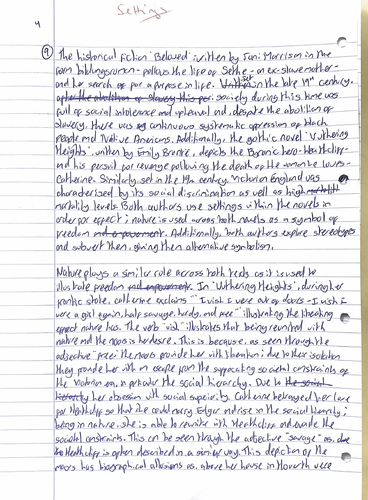 Settings
4
9 The historical fiction 'Beloved' written by Toni Morrison in the
form bildungsroman - follows the life of Sethe - an ex-slave mother -
and her search of for a purpose in life. Written set in the late 19th century,
after the abolition of slavery this per society during this time was
full of social intolerance and upheaval and, despite the abolition of
slavery, there was continuous systematic oppression of black
people and Native Americans. Additionally, the gothic novel 'Wuthering
Heights', written by Emily Bronte, depicts the Byronic hero - Heathcliff -
and his persuit for revenge following the death of the romantic lovers -
Catherine. Similarly, set in the 19th century, Victorian England was
characterised by its social discrimination as well as high
mortality levels. Both authors use settings within the novels in
order for effect; nature is used across both novels as a symbol of
freedom and empowerment. Additionally, both authors explore stereotypes
and subvert them, giving them alternative symbolism.
Nature plays a similar role across both texts as it is used to
illustrate freedom and empowerment. In 'Wuthering Heights', during her
frantic state, Catherine exclaims "I wish I were out of doors - I wish I
were a girl again, half savage, hardy, and free" illustrating the liberating
effect nature has. The verb "wish" illustrates that being reunited with
nature and the moors is her desire. This is because, as seen through the
adjective "free", the moors provide her with liberation; due to their isolation
they provide her with an escape from the suffocating societal constraints of
the Victorian era, in particular the social hierarchy. Due to the social
hierarchy her obsession with social superiority, Catherine betrayed her love
for Heathcliff so that she could marry Edgar and rise in the social hierarchy;
being in nature, she is able to reunite with Heathcliff and evade the
societal constraints. This can be seen through the adjective "savage" as, due
to Heathcliff is often described in a similar way. This depiction of the
moors has biographical allusions as, above her house in Haworth were